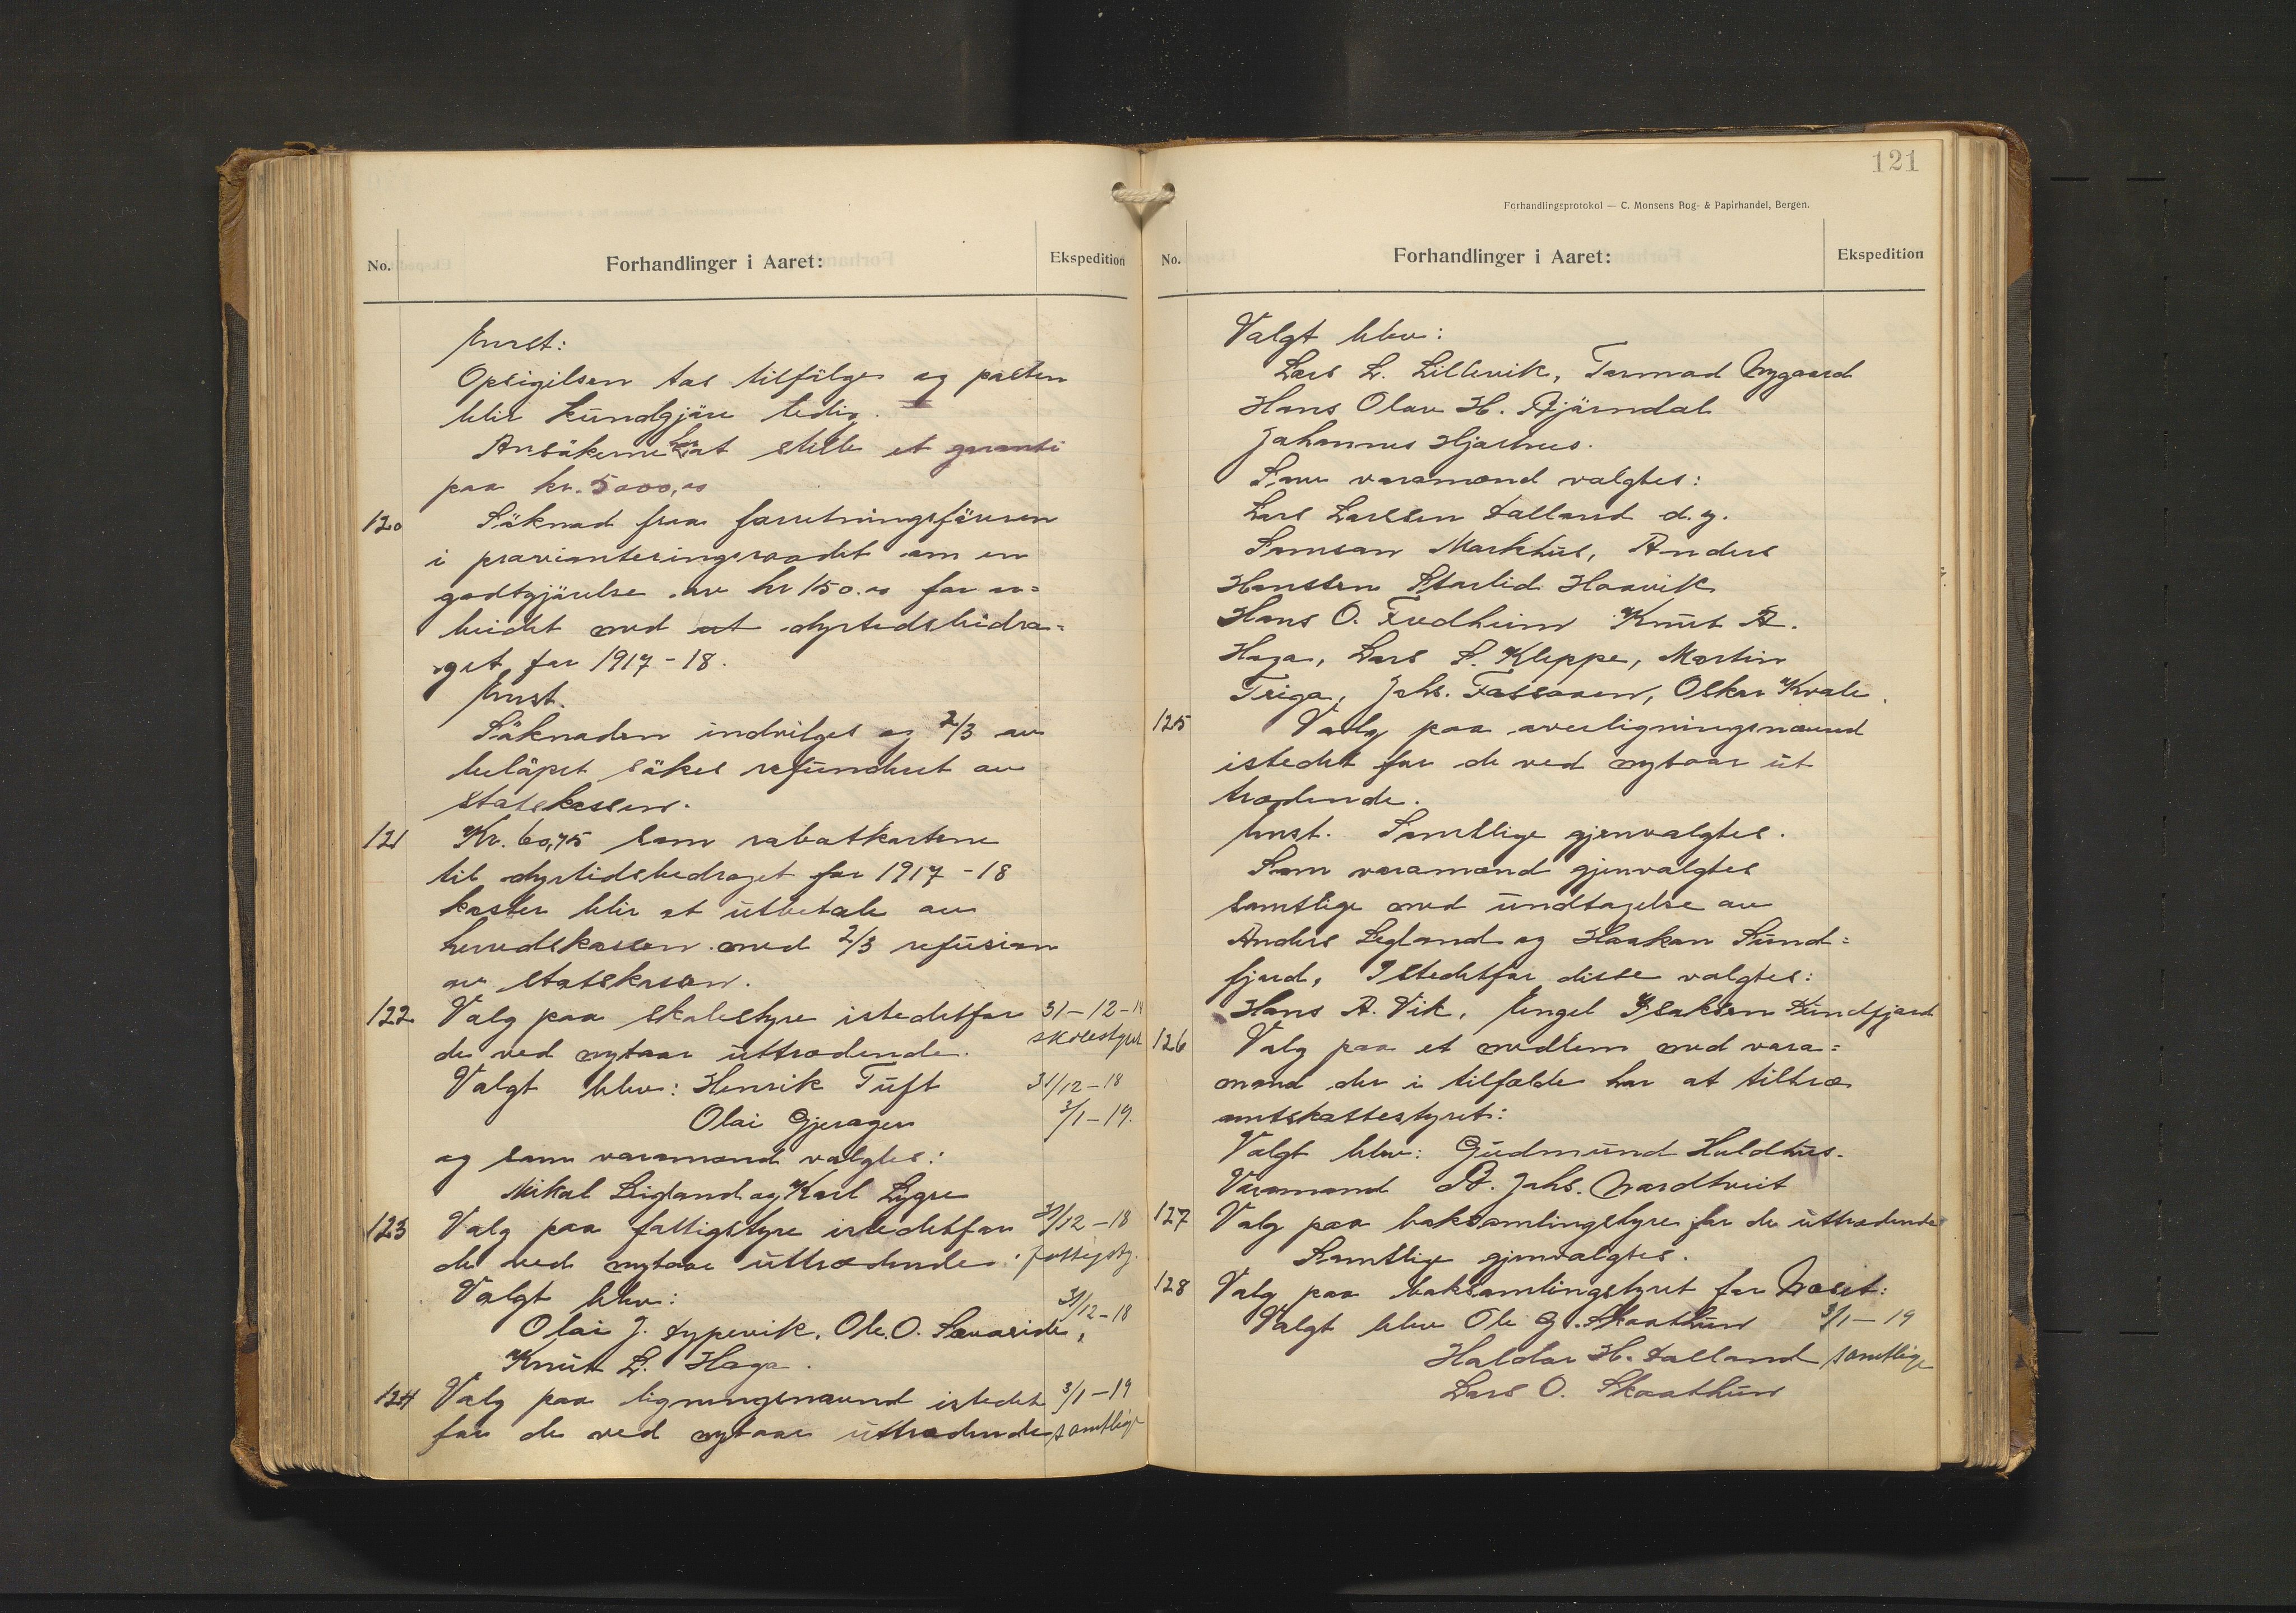 No.
Forhandlinger i Aaret:
Ekspedition
Enst:
Opsigilsen tas tilfölge og posten
blir kundgjöre ledig.
Ansökerne har at stille et garanti
paa kr. 5000,00
120 Söknad fraa forretningsföreren
i provianteringsraadet om en
godtgjörelse av kr 150.00 for ar=
beidet med at dyrtedsbidra=
get for 1917-18.
Enst.
Söknaden indvilges og 2/3 av
belöpet sökes refunderet av
statskassen.
121 Kr. 60,75 som rabatkortene
til dyrtidsbedraget for 1917-18
koster blir at utbetale av
herredskassen med 2/3 refusion
av statskassen.
122 Valg paa skolestyre istedetfor 31-12-18
de ved nytaar uttrædende. skolestyret
Valgt blev: Henrik Tuft 31/12-18
Olai Gjerager 3/1-19.
og som varamænd valgtes:
Mikal Ligland og Karl Lygre
123 Valg paa fattigstyre istedetfor 31/12-18
de ved nytaar uttrædende. fattigsty.
Valgt blev:
31/12-18
Olai J. Sypevik, Ole O. Sævareide,
Knut L. Haga.
124 Valg paa ligningsnævnd istedet 3/1-19
for de ved nytaar uttrædende samtlige
121
Forhandlingsprotokol — C. Monsens Bog- & Papirhandel, Bergen.
No.
Forhandlinger i Aaret:
Ekspedition
Valgt blev:
Lars L. Lillevik, Tormod Nygaard
Hans Olav H. Bjørndal
Johannes Hjartnes.
Som varamænd valgtes:
Lars Larssen Dalland d.y.
Samson Markhus, Anders
Hanssen Haavik
Hans O. Fredheim Knut A.
Haga, Lars S. Kleppe, Martin
Teiga, Johs. Fossaaen, Oskar Kvale.
125 Valg paa overligningsnævnd
istedet for de ved nytaar ut
trædende.
Enst. Samtlige gjenvalgtes.
Som varamænd gjenvalgtes
samtlige med undtagelse av
Anders Legland og Haakon Sund=
fjord, Istedetfor disse valgtes:
Hans A. Vik, Engel Isaksen Sundfjord
126 Valg paa et medlem med vara=
mand der i tilfælde har at tiltræ
amtskattestyret:
Valgt blev: Gudmund Huldhus.
Varamand A. Johs. Nordtveit
127 Valg paa boksamlingstyre for de uttrædende
Samtlige gjenvalgtes.
128 Valg paa boksamlingstyret for Næset:
Valgt blev Ole G. Skaathun 3/1-19
Haldor H. Dalland samtlige
Lars O. Skaathun